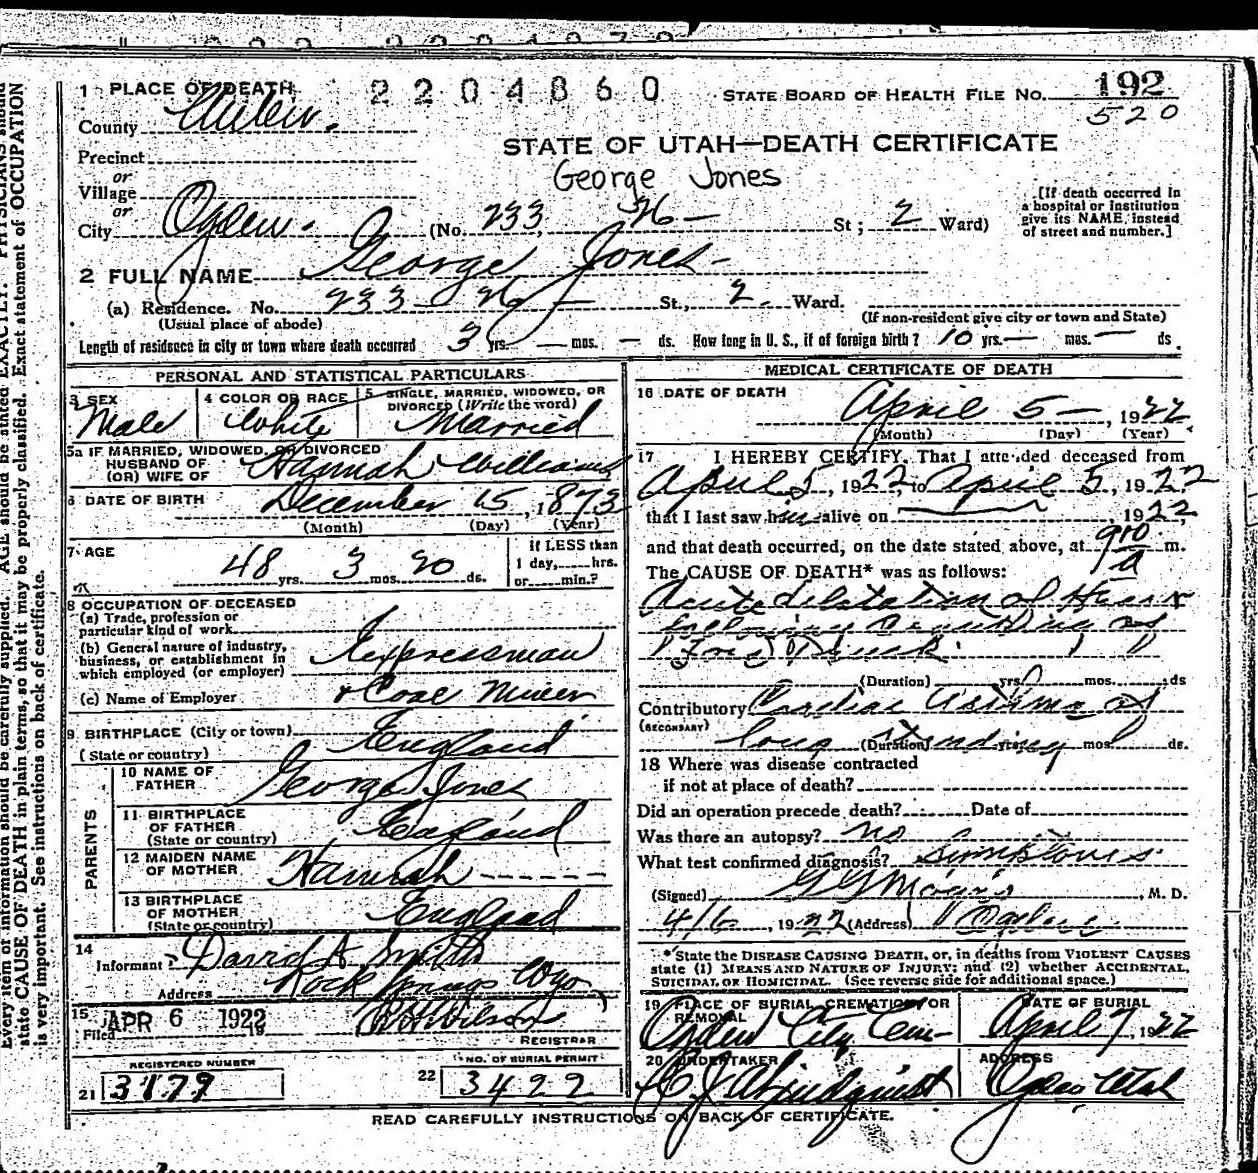 2204860
1 PLACE OF DEATH
STATE BOARD OF HEALTH FILE No. 192
520
County
STATE OF UTAH—DEATH CERTIFICATE
Precinct
or
George Jones
Village
or
[If death occurred in
a hospital or institution
give its NAME, instead
of street and number.]
City Ogden. (No. 233 26 — St; 2 Ward)
2 FULL NAME George Jones
(a) Residence. No. 233 26 — St., 2 Ward.
(Usual place of abode) (If non-resident give city or town and State)
Length of residence in city or town where death occurred 3 yrs. — mos. — ds. How long in U. S., if of foreign birth? 10 yrs. — mos. — ds.
PERSONAL AND STATISTICAL PARTICULARS
3 SEX
Male
4 COLOR OR RACE
White
5 SINGLE, MARRIED, WIDOWED, OR
DIVORCED (Write the word)
Married
5a IF MARRIED, WIDOWED, OR DIVORCED
HUSBAND OF
(OR) WIFE OF Hannah Williams
6 DATE OF BIRTH December 15, 1873
(Month) (Day) (Year)
7 AGE
48 yrs. 3 mos. 20 ds.
if LESS than
1 day, hrs.
or min.?
8 OCCUPATION OF DECEASED
(a) Trade, profession or
particular kind of work
(b) General nature of industry,
business, or establishment in
which employed (or employer) Expressman
(c) Name of Employer + Coal Miner
9 BIRTHPLACE (City or town)
(State or country) England
PARENTS
10 NAME OF
FATHER George Jones
11 BIRTHPLACE
OF FATHER
(State or country) England
12 MAIDEN NAME
OF MOTHER Hannah
13 BIRTHPLACE
OF MOTHER
(State or country) England
14
Informant David A Smith
Address Rock Springs Wyo
15
Filed APR 6 1922 Wilson
REGISTRAR
REGISTERED NUMBER
21 3179
NO. OF BURIAL PERMIT
22 3422
MEDICAL CERTIFICATE OF DEATH
16 DATE OF DEATH
April 5 —, 1922
(Month) (Day) (Year)
17 I HEREBY CERTIFY, That I attended deceased from
April 5, 1922, to April 5, 1922
that I last saw him alive on 1922,
and that death occurred, on the date stated above, at 9 10 a m.
The CAUSE OF DEATH* was as follows:
Acute dilatation of Heart
following
(Duration) yrs. mos. ds
Contributory Cardiac Asthma of
(SECONDARY)
long standing (Duration) yrs. mos. ds.
18 Where was disease contracted
if not at place of death?
Did an operation precede death? Date of
Was there an autopsy? No
What test confirmed diagnosis? Symptoms
(Signed) M. D.
4/6, 1922 (Address) Ogden
*State the DISEASE CAUSING DEATH, or, in deaths from VIOLENT CAUSES
state (1) MEANS AND NATURE OF INJURY; and (2) whether ACCIDENTAL,
SUICIDAL OR HOMICIDAL. (See reverse side for additional space.)
19 PLACE OF BURIAL, CREMATION, OR
REMOVAL
Ogden City Cem
DATE OF BURIAL
April 7, 1922
20 UNDERTAKER
Lindquist
ADDRESS
Ogden Utah
READ CAREFULLY INSTRUCTIONS ON BACK OF CERTIFICATE.
Every item of information should be carefully supplied. AGE should be stated EXACTLY. PHYSICIANS should
state CAUSE OF DEATH in plain terms, so that it may be properly classified. Exact statement of OCCUPATION
is very important. See instructions on back of certificate.